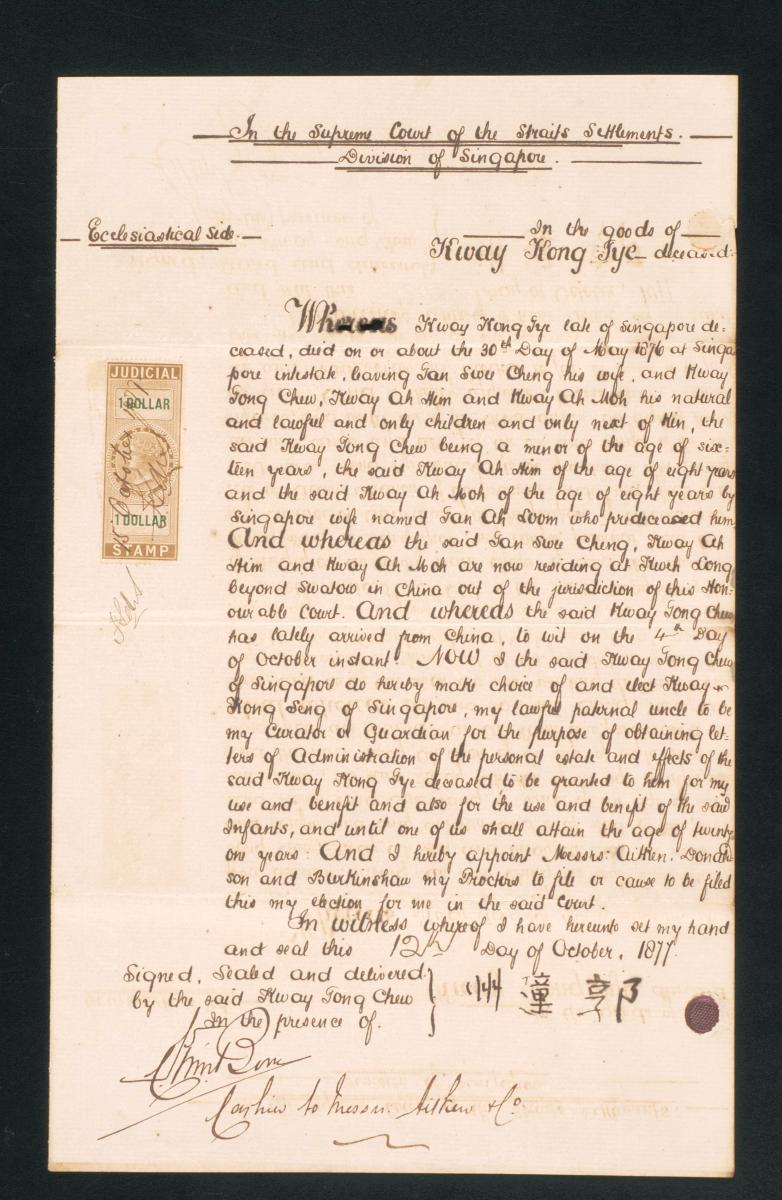 In the Supreme Court of the Straits Settlements.
Division of Singapore.
Ecclesiastical Side.
In the goods of
Kway Hong Tye deceased.
Whereas Kway Hong Tye late of Singapore de-
ceased, died on or about the 30th Day of May 1876 at Singa
pore intestate, leaving Tan Swee Cheng his wife, and Kway
Tong Chew, Kway Ah Him and Kway Ah Moh his natural
and lawful and only children and only next of Kin, the
said Kway Tong Chew being a minor of the age of six-
teen years, the said Kway Ah Him of the age of eight years
and the said Kway Ah Moh of the age of eight years by
Singapore wife named Tan Ah Loom who predeceased him
And whereas the said Tan Swee Cheng, Kway Ah
Him and Kway Ah Moh are now residing at Kweh Long
beyond Swatow in China out of the jurisdiction of this Hon-
ourable Court. And whereas the said Kway Tong Chew
has lately arrived from China, to wit on the 4th Day
of October instant. NOW I the said Kway Tong Chew
of Singapore do hereby make choice of and elect Kway
Hong Seng of Singapore, my lawful paternal uncle to be
my Curator or Guardian for the purpose of obtaining let-
ters of Administration of the personal estate and effects of the
said Kway Hong Tye deceased, to be granted to him for my
use and benefit and also for the use and benefit of the said
Infants, and until one of us shall attain the age of twenty
one years: And I hereby appoint Messrs: Aitken. Donald-
son and Burkinshaw my Proctors to file or cause to be filed
this my election for me in the said Court.
In witness whereof I have hereunto set my hand
and seal this 12th Day of October, 1877.
Signed, Sealed and delivered
by the said Kway Tong Chew
in the presence of.
郭 潼 州
Cashier to Messrs. Aitken & Co
JUDICIAL
1 DOLLAR
1 DOLLAR
STAMP
15 October